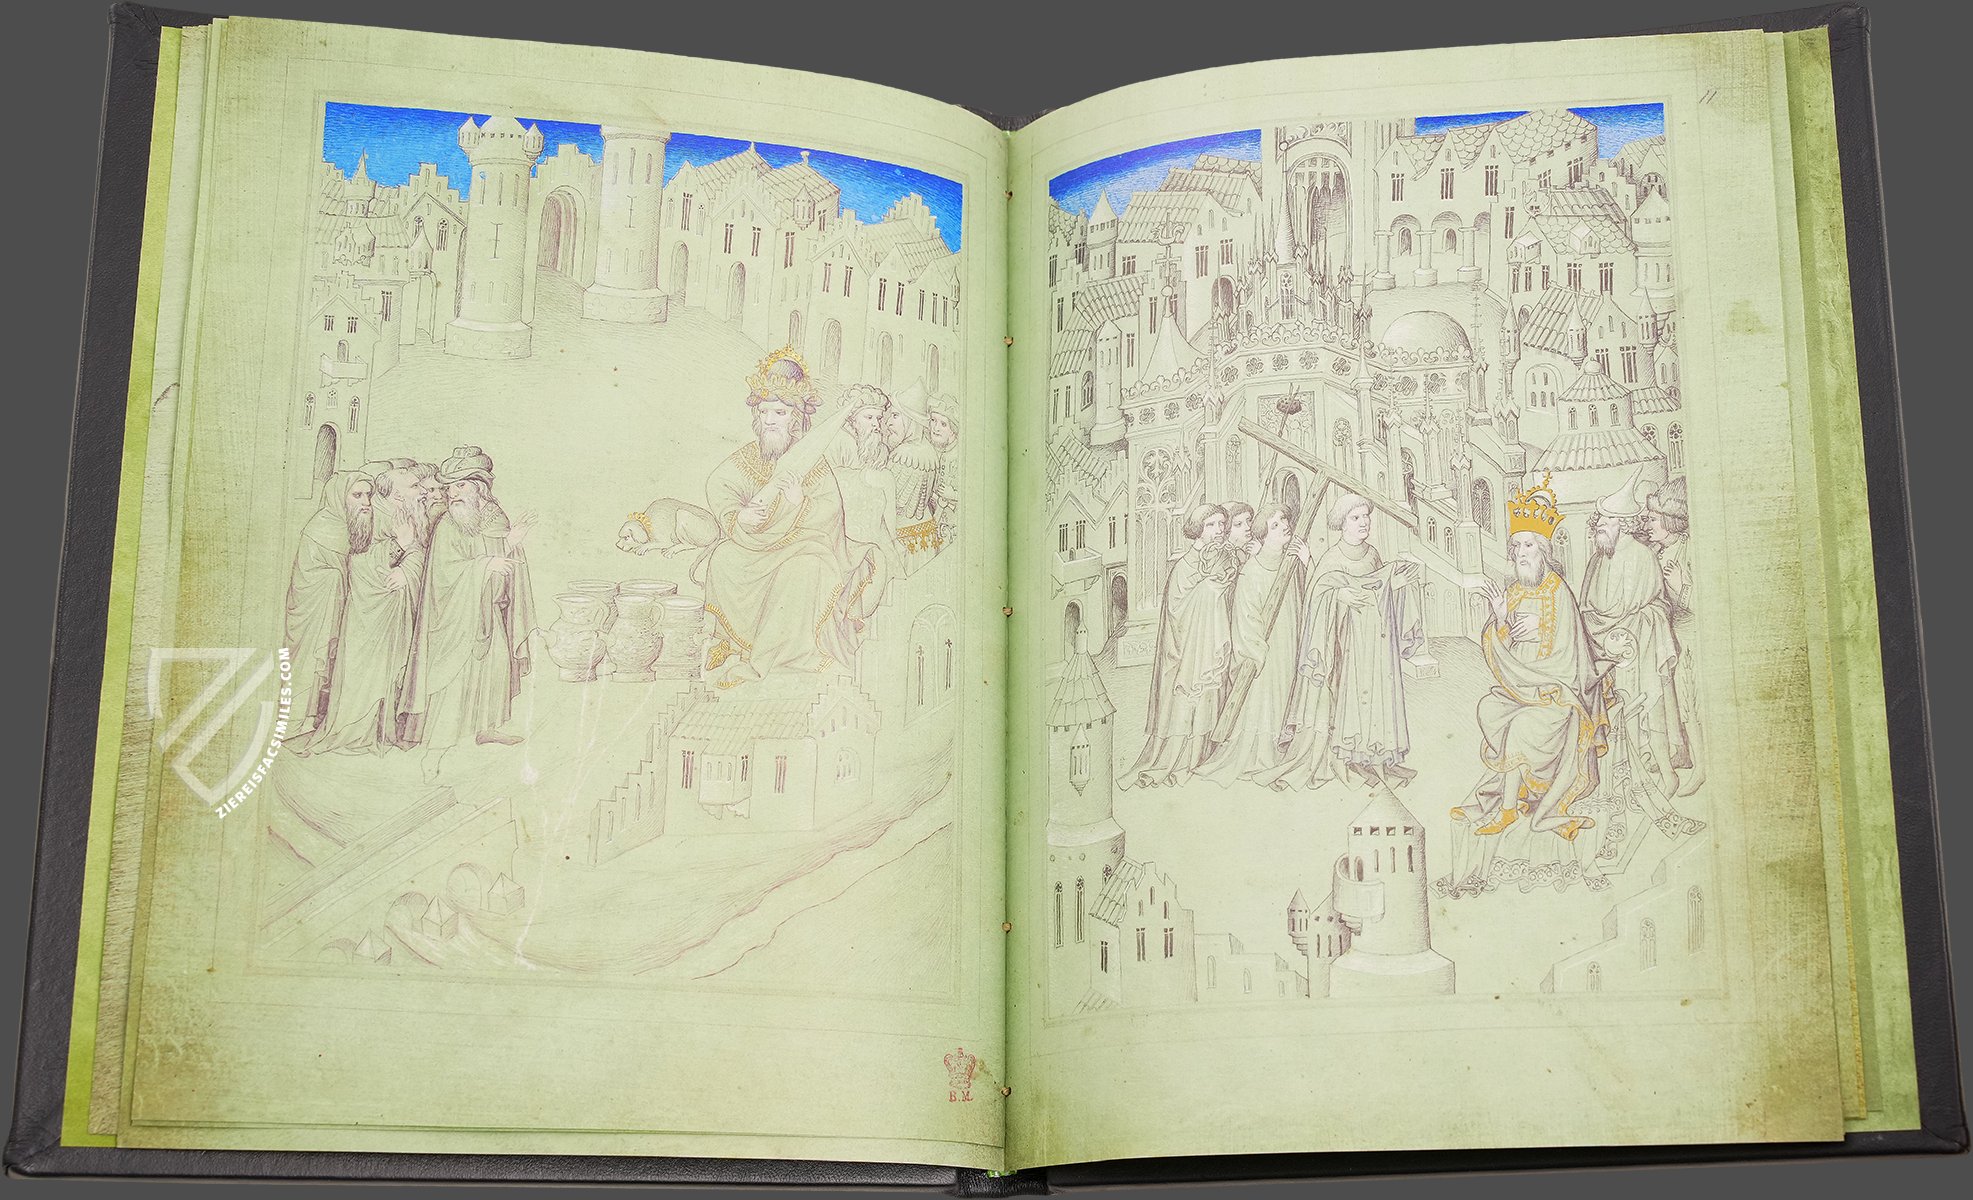 ZIEREISFACSIMILES.COM
B.M.
11